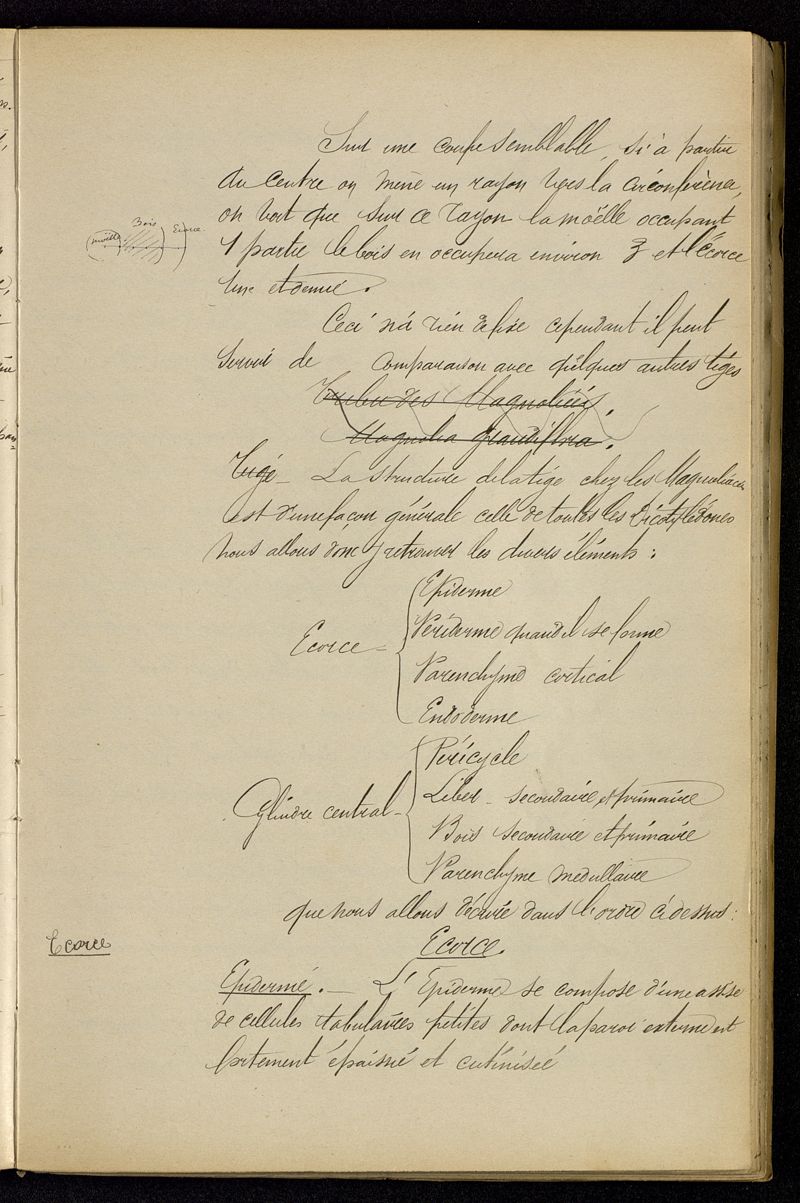 Sur une coupe semblable, si à partir
du centre on mène un rayon vers la circonférence,
on voit que sur ce rayon la moëlle occupant
1 partie le bois en occupera environ 3 et l'écorce
une et demie.
moëlle Bois Ecorce
Ceci n'a rien de fixe cependant il peut
servir de comparaison avec quelques autres tiges
Tribu des Magnoliées
Magnolia grandiflora.
Tige - La structure de la tige chez les Magnoliacées
est d'une façon générale celle de toutes les Dicotylédones
nous allons donc y retrouver les divers éléments :
Ecorce - { Epiderme
Périderme quand il se forme
Parenchyme cortical
Endoderme
Cylindre central - { Péricycle
Liber - secondaire et primaire
Bois secondaire et primaire
Parenchyme medullaire
que nous allons décrire dans l'ordre ci dessus :
Ecorce
Ecorce.
Epiderme. — L'Epiderme se compose d'une assise
de cellules tabulaires petites dont la paroi externe est
fortement épaissie et cutinisée